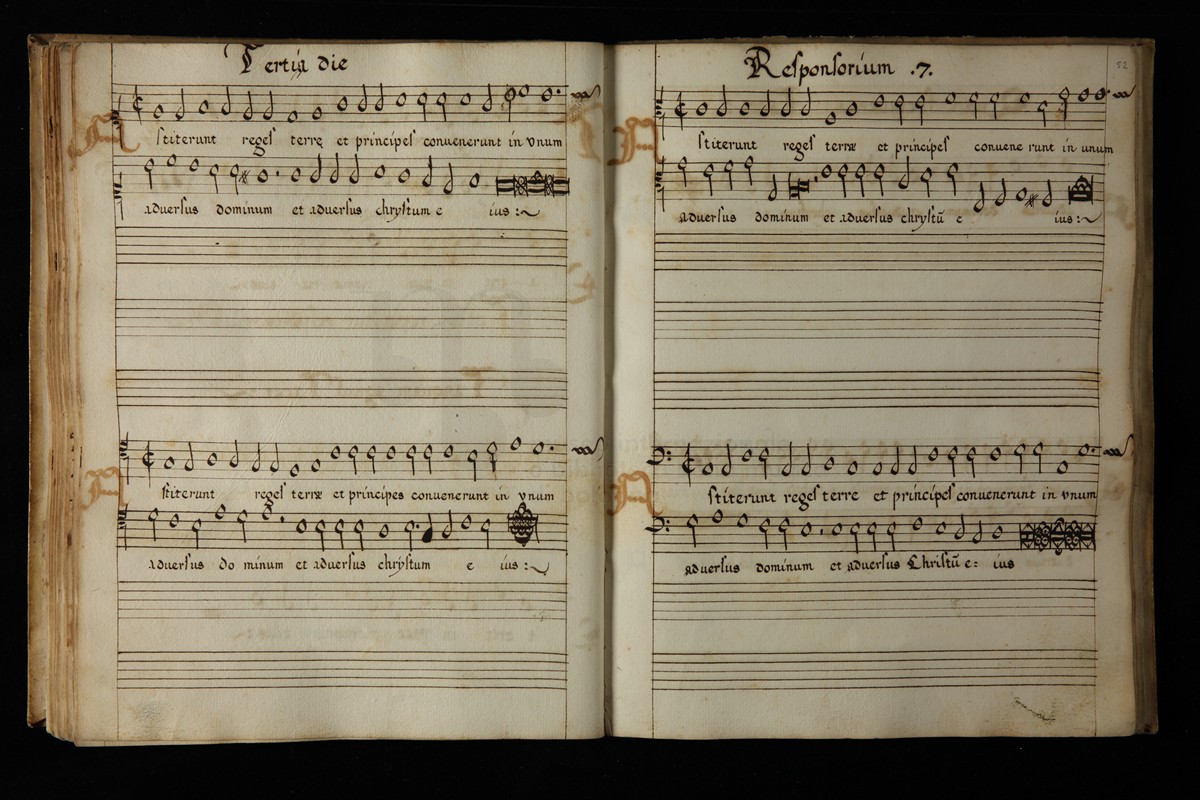 Tertia die
Astiterunt reges terrę et principes convenerunt in vnum
aduersus dominum et aduersus chrystum eius :~
Astiterunt reges terræ et principes convenerunt in vnum
aduersus do minum et aduersus chrystum e ius :~
Responsorium .7.
52
Astiterunt reges terræ et principes convene runt in unum
aduersus dominum et aduersus chrystū e ius :~
Astiterunt reges terre et principes convenerunt in vnum
aduersus dominum et aduersus Christū e: ius